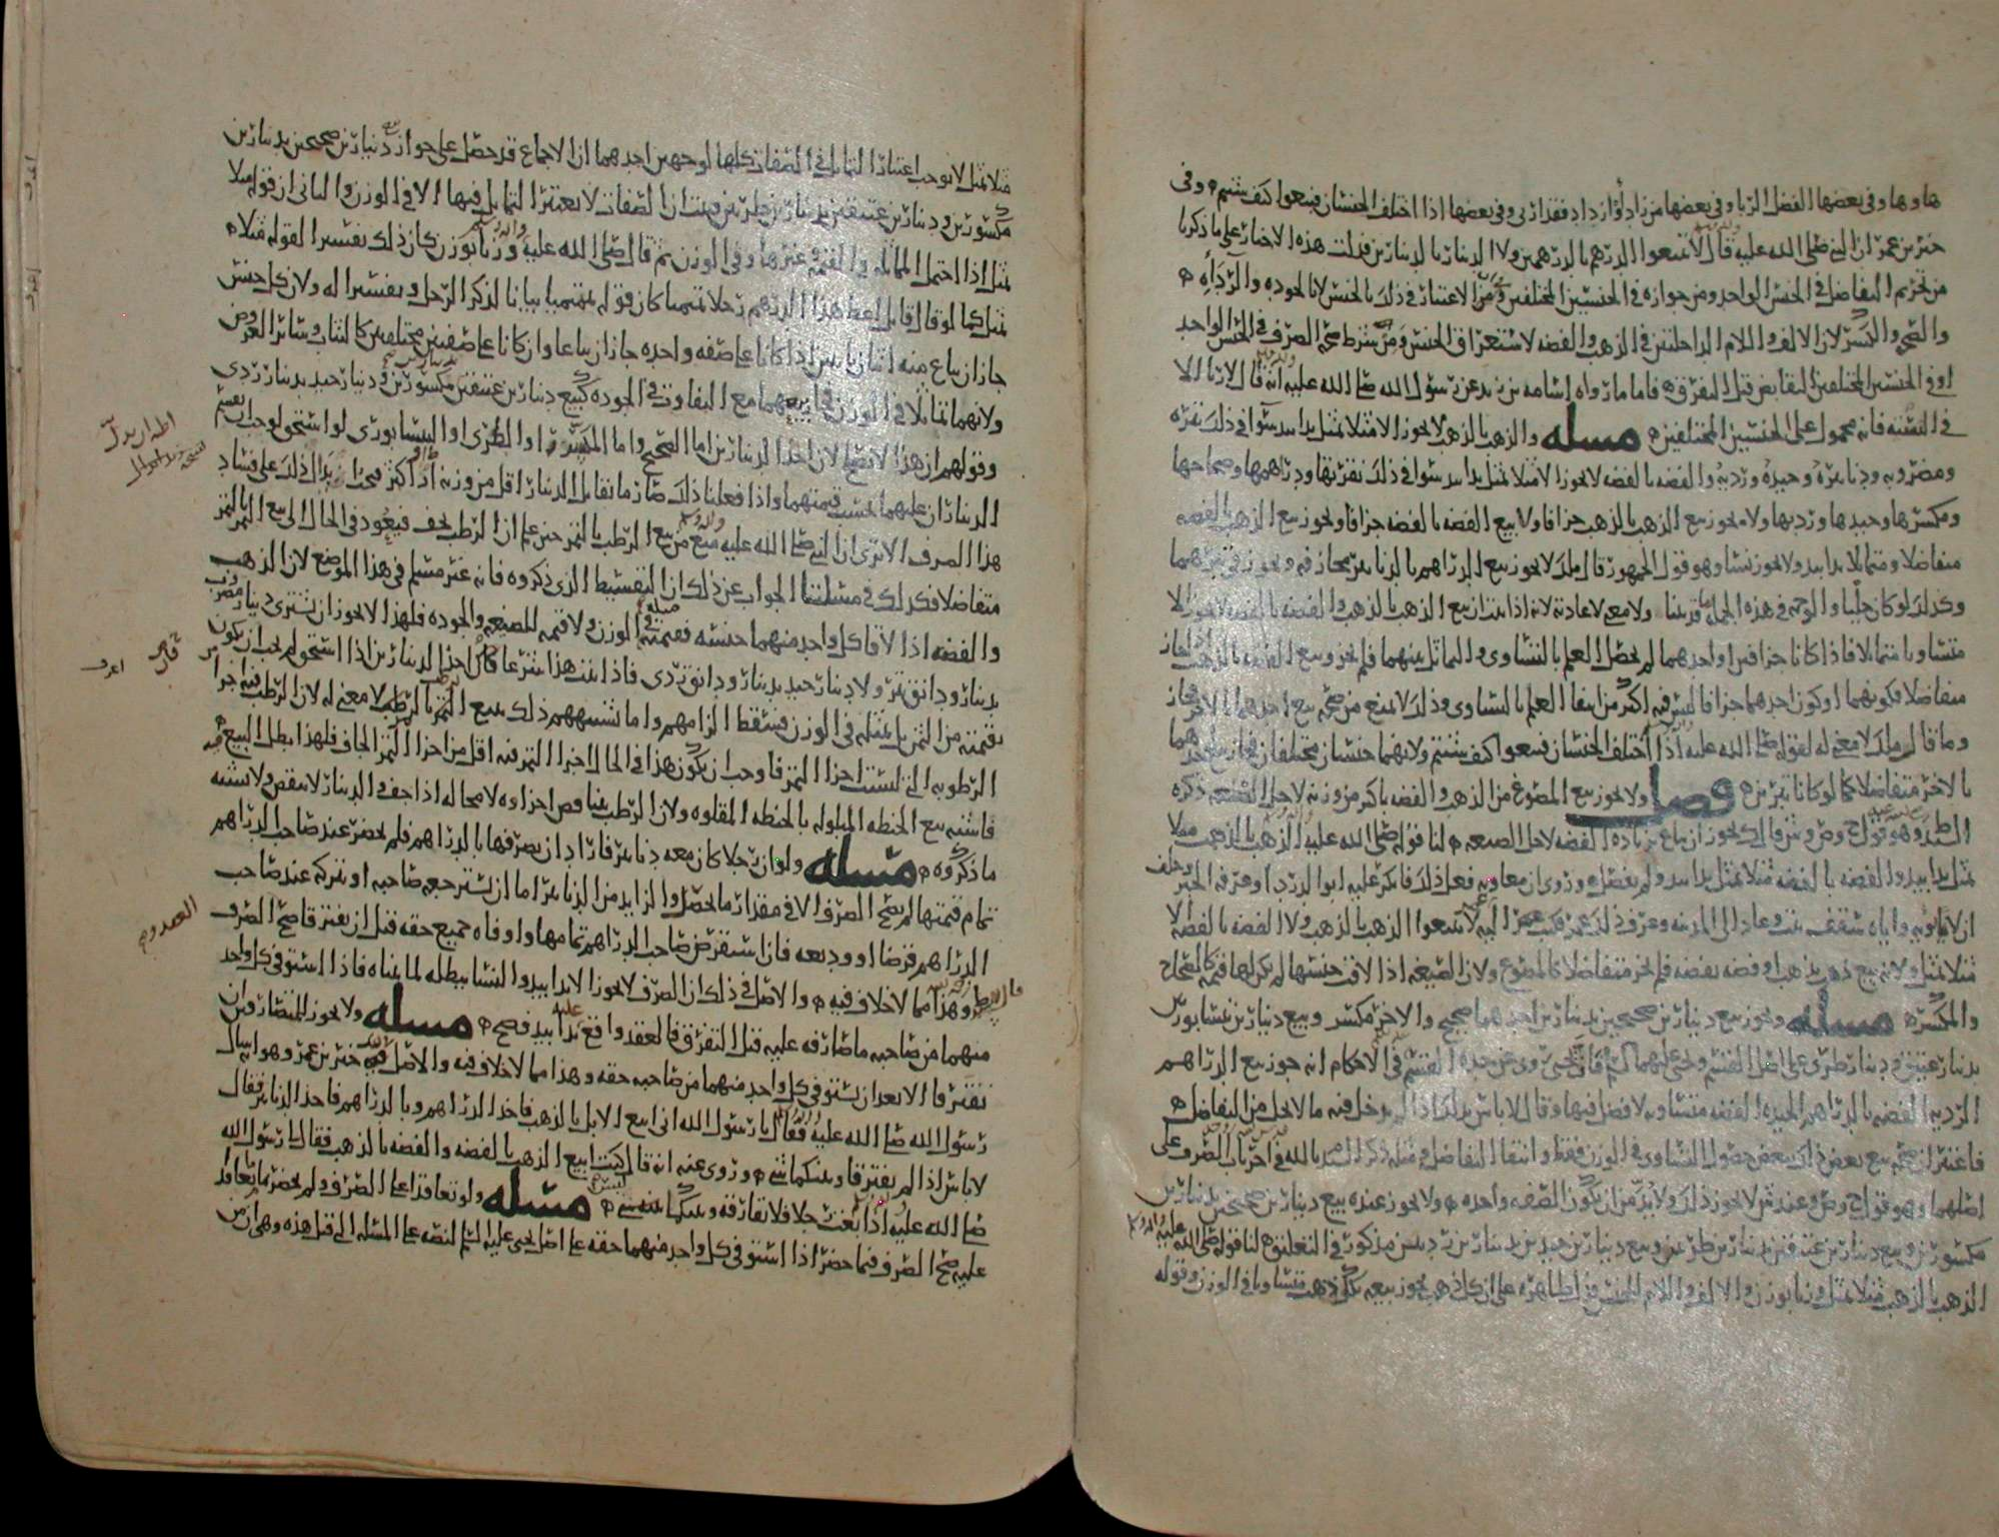 هاوها وفي بعضها الفضل الربا وفي بعضها من زاد أو ازداد فقد اربى وفي بعضها اذا اختلف الجنسان فبيعوا كيف شئتم وفي
خبر بن عمر ان النبي صلى الله عليه قال لا تبيعوا الدرهم بالدرهمين ولا الدينار بالدينارين فدلت هذه الاخبار على ما ذكرنا
من تحريم التفاضل في الجنس الواحد ومن جوازه في الجنسين المختلفين الاعتبار في ذلك بالجنس لا بالجوده والرداه
والصحه والكسر لان الالف واللام الداخلتين في الذهب والفضه لاستغراق الجنس ومن شرط صحه الصرف في الجنس الواحد
او في الجنسين المختلفين التقابض قبل التفرق فاما ما رواه اسامه بن زيد عن رسول الله صلى الله عليه انه قال لا ربا الا
في النسيه فانه محمول على الجنسين المختلفين مسله والذهب بالذهب لا يجوز الا مثلا بمثل يدا بيد سوا في ذلك تبره
ومضروبه ودنانيره وجيده ورديه والفضه بالفضه لا يجوز الا مثلا بمثل يدا بيد سوا في ذلك نقرتها ودراهمها وصحاحها
ومكسرها وجيدها ورديها ولا يجوز بيع الذهب بالذهب جزافا ولا بيع الفضه بالفضه جزافا ويجوز بيع الذهب بالفضه
متفاضلا ومتماثلا يدا بيد ولا يجوز نسا وهو قول الجمهور قال ملك لا يجوز بيع الدراهم بالدنانير مجازفه ويجوز في تبرهما
وكذلك لو كان حليا والوجه في هذه الجمله ما قدمنا ولا معنى لاعادته لانه اذا ثبت ان بيع الذهب بالذهب والفضه بالفضه لا يجوز الا
متساويا متماثلا فاذا كانا جزافين او احدهما لم يحصل العلم بالتساوي والتماثل بينهما فلم يجز وبيع الفضه بالذهب
متفاضلا فكونهما او كون احدهما جزافا ليس فيه اكثر من انتفا العلم بالتساوي وذلك لا يمنع من صحه بيع احدهما بالاخر
وما قال ملك لا معنى له لقوله صلى الله عليه اذا اختلف الجنسان فبيعوا كيف شئتم ولانهما جنسان مختلفان فجاز بيع احدهما
بالاخر متفاضلا كما لو كانا تبرين فصل ولا يجوز بيع المصوغ من الذهب والفضه باكثر من وزنه لاجل الصنعه ذكره
وهو قول ح وص وش وقال ك يجوز ان يباع بزياده الفضه لاجل الصنعه لنا قوله صلى الله عليه الذهب بالذهب مثلا
بمثل يدا بيد والفضه بالفضه مثلا بمثل يدا بيد ولم يفصل وروي ان معاويه فعل ذلك فانكر عليه ابو الدردا وعرفه الخبر وحلف
وعاد الى المدينه وعرف ذلك عمر فكتب عمر اليه لا تبيعوا الذهب بالذهب ولا الفضه بالفضه الا
مثلا بمثل ولانه بيع ذهب بذهب او فضه بفضه فلم يجز متفاضلا كالمصوغ ولان الصيغه اذا لاقت جنسها لم يكن لها قيمه كالصحاح
والمكسره مسله ويجوز بيع دينارين صحيحين بدينارين احدهما صحيح والاخر مكسر وبيع دينارين نيسابوريين
بدينار عتيق ودينار طبري على اصل القسم ويحيى عليهما السلم فان يحيى روى عن جده القسم في الاحكام انه جوز بيع الدراهم
الرديه الفضه بالدراهم الجيده الفضه متساويه لا فضل فيها وقال لا باس بذلك اذا لم يدخل فيه ما لا يحل من التفاضل
فاعتبر ان صحه بيع بعض ذلك ببعض حصول التساوي في الوزن فقط وانتفا التفاضل في مثله ذكر السيد ط بالله في اخر باب الصرف على
اصلهما وهو قول ح وص وعند ش لا يجوز ذلك ولا بد من ان يكون الصفه واحده ولا يجوز عنده بيع دينارين صحيحين بدينارين
مكسورين وبيع دينارين عتيقين بدينارين طبريين وبيع دينارين جيدين بدينارين رديين مذكور في التعليق لنا قوله صلى الله عليه
الذهب بالذهب مثلا بمثل وزنا بوزن والالف واللام للجنس فظاهره على ان كل ذهب يجوز بيعه بكل ذهب متساويا في الوزن وقوله
مثلا بمثل لا يوجب اعتبار التماثل في الصفات كلها لوجهين احدهما ان الاجماع قد حصل على جواز دينارين صحيحين بدينارين
مكسورين ودينارين عتيقين بدينارين طبريين فثبت ان الصفات لا يعتبر التماثل فيها الا في الوزن والثاني ان قوله مثلا
بمثل اذا احتمل المماثله في القيمه وغيرها وفي الوزن ثم قال صلى الله عليه وزنا بوزن كان ذلك تفسيرا لقوله مثلا
بمثل كما لو قال القائل اعط هذا الدرهم رجلا تميميا كان قوله تميميا بيانا لذكر الرجل وتفسيرا له ولان كل جنس
جاز ان يباع منه اثنان باثنين اذا كانا على صفه واحده جاز ان يباعا وان كانا على صفتين مختلفتين كالثياب وسائر العروض
ولانهما تماثلا في الوزن فجاز بيعهما مع التفاوت في الجوده كبيع دينارين عتيقين بدينارين مكسورين ودينار جيد بدينار ردي
وقولهم ان هذا لا يصح لان احد الدينارين اما الصحيح واما المكسور او الطبري او النيسابوري لو استحق لوجب ان يقسم
الديناران عليهما بحسب قيمتهما واذا فعلنا ذلك صار ما يقابل الدينار اقل من وزنه او اكثر فدل ذلك على فساد
هذا الصرف الا ترى ان النبي صلى الله عليه منع من بيع الرطب بالتمر حين علم ان الرطب يجف فيعود في الحال الى بيع التمر بالتمر
متفاضلا فكذلك في مسئلتنا الجواب عن ذلك ان التقسيط الذي ذكروه فانه غير مسلم في هذا الموضع لان الذهب
والفضه اذا لاقا كل واحد منهما جنسه فقيمته مثله في الوزن ولا قيمه للصنعه والجوده فلهذا لا يجوز ان يشترى دينار مضروب
بدينار ودانق تبر ولا دينار جيد بدينار ودانق ردي فاذا ثبت هذا شرعا كان احد الدينارين اذا استحق لم يجب ان يكون
بقيمته من الثمن بل بمثله في الوزن فسقط الزامهم واما تشبيههم ذلك ببيع التمر بالرطب لا معنى له لان الرطب فيه اجزا
الرطوبه التي ليست اجزا التمر فاوجب ان يكون هذا في الحال اجزا التمر فيه اقل من اجزا التمر الجاف فلهذا بطل البيع فيه
فاشبه بيع الحنطه المبلوله بالحنطه المقلوه ولان الرطب يتناقص اجزاوه لا محاله اذا جف والدينار لا ينقص ولا يشبه
ما ذكروه مسله ولو ان رجلا كان معه دنانير فاراد ان يصرفها بالدراهم فلم يحضر عند صاحب الدراهم
تمام قيمتها لم يصح الصرف الا في مقدار ما يحصل والزايد من الدنانير اما ان يسترجعه صاحبه او يتركه عند صاحب
الدراهم قرضا او وديعه فان استقرض صاحب الدراهم تمامها واوفاه جميع حقه قبل ان يفترقا صح الصرف
وهذا مما لا خلاف فيه والاصل في ذلك ان الصرف لا يجوز الا يدا بيد والنسا يبطله لما بيناه فاذا استوفى كل واحد
منهما من صاحبه ما صارفه عليه قبل التفرق فالعقد واقع يدا بيد فصح مسله ولا يجوز للمتصارفين ان
يفترقا الا بعد ان يستوفي كل واحد منهما من صاحبه حقه وهذا مما لا خلاف فيه والاصل فيه خبر بن عمر وهو انه سال
رسول الله صلى الله عليه فقال يا رسول الله اني ابيع الابل بالذهب فاخذ الدراهم وبالدراهم فاخذ الدنانير فقال
لا باس اذا لم تفترقا وبينكما شي وروي عنه انه قال كنت ابيع الذهب بالفضه والفضه بالذهب فقال لي رسول الله
صلى الله عليه اذا بايعت رجلا فلا تفارقه وبينكما لبس مسله ولو تعاقدا على الصرف ولم يحضر ما تعاقدا
عليه صح الصرف فيما حضر اذا استوفى كل واحد منهما حقه على اصل يحيى عليه السلم لنصه على المسئله التي قبل هذه وهي ان من